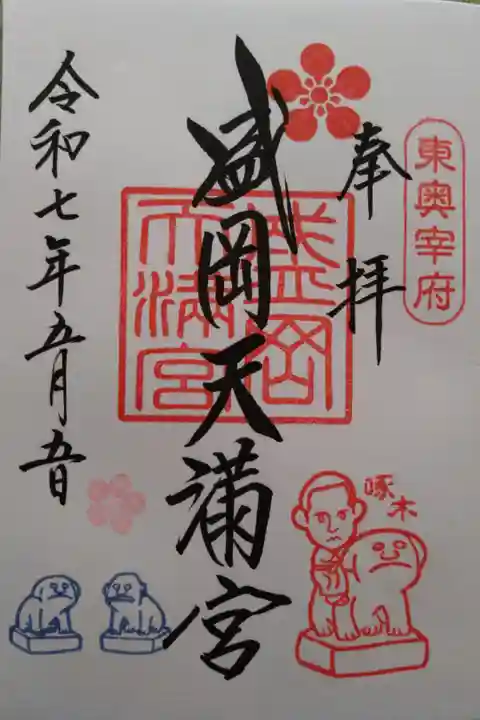 東奥宰府
奉拝
盛岡天満宮
盛岡
天満宮
令和七年五月五日
啄木